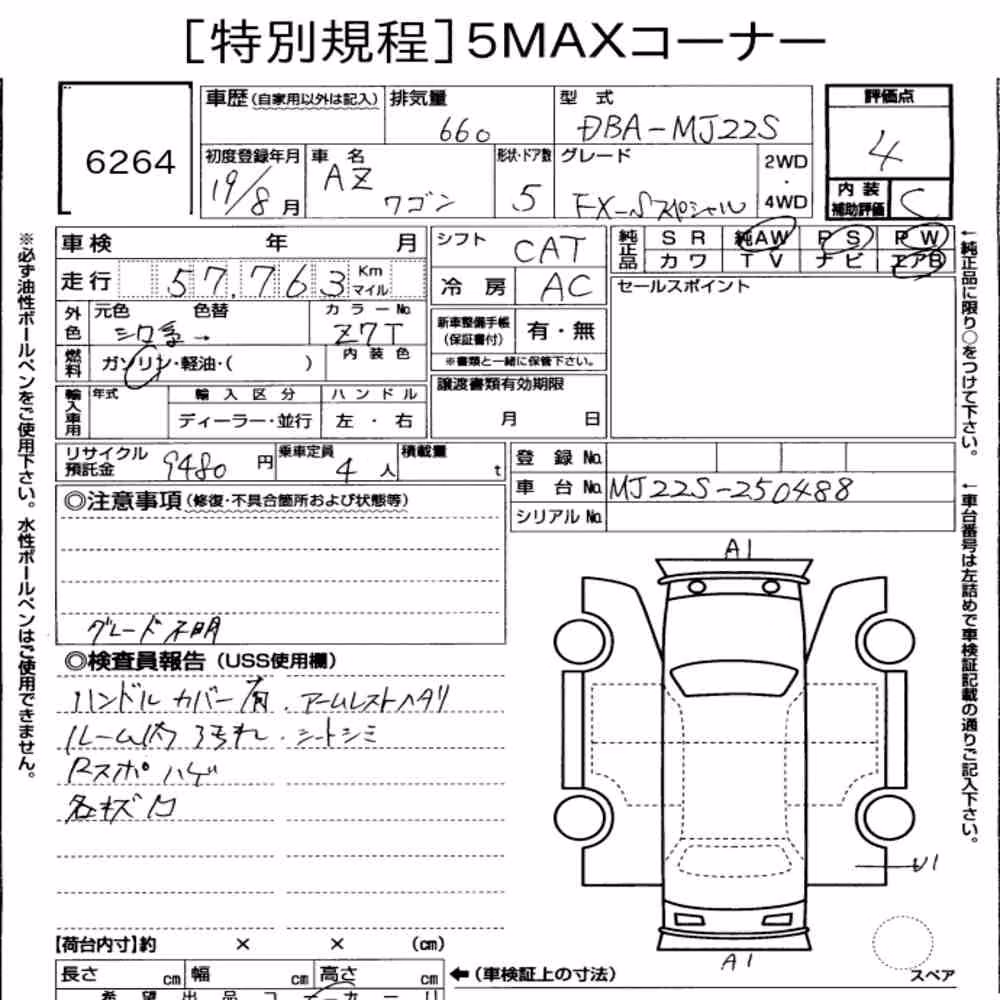 [特別規程]5MAXコーナー
6264
車歴(自家用以外は記入) 排気量 型 式 評価点
660 DBA-MJ22S 4
初度登録年月 車 名 形状・ドア数 グレード 2WD・4WD
19/8月 AZ ワゴン 5 FX-Sスペシャル
内装補助評価 C
車検 年 月 シフト CAT 純正品 SR 純AW PS PW
カワ TV ナビ エアB
走行 57,763 Km マイル 冷房 AC セールスポイント
外色 元色 色替 カラーNo.
シロ系 → Z7T
新車整備手帳(保証書付) 有・無
※書類と一緒に保管下さい。
燃料 ガソリン・軽油・( ) 内装色
譲渡書類有効期限
月 日
輸入車用 年式 輸入区分 ハンドル
ディーラー・並行 左・右
リサイクル預託金 9480円 乗車定員 4人 積載量 t
登録No.
車台No. MJ22S-250488
シリアルNo.
◎注意事項(修復・不具合箇所および状態等)
グレード不明
◎検査員報告(USS使用欄)
ハンドルカバー有. アームレストヘタリ
ルーム内汚れ. シートシミ
Rスポハゲ
各キズ凹
A1
U1
A1
スペア
【荷台内寸】約 × × (cm)
長さ cm 幅 cm 高さ cm ←(車検証上の寸法)
希望出品コーナー
※必ず油性ボールペンをご使用下さい。水性ボールペンはご使用できません。
←純正品に限り○をつけて下さい。
←車台番号は左詰めで車検証記載の通りご記入下さい。